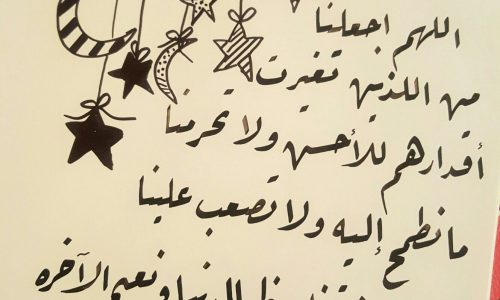 اللهم اجعلنا
من اللذين تغيرت
أقدارهم للأحسن ولا تحرمنا
ما نطمح إليه ولا تصعب علينا
الدنيا ونعيم الآخره